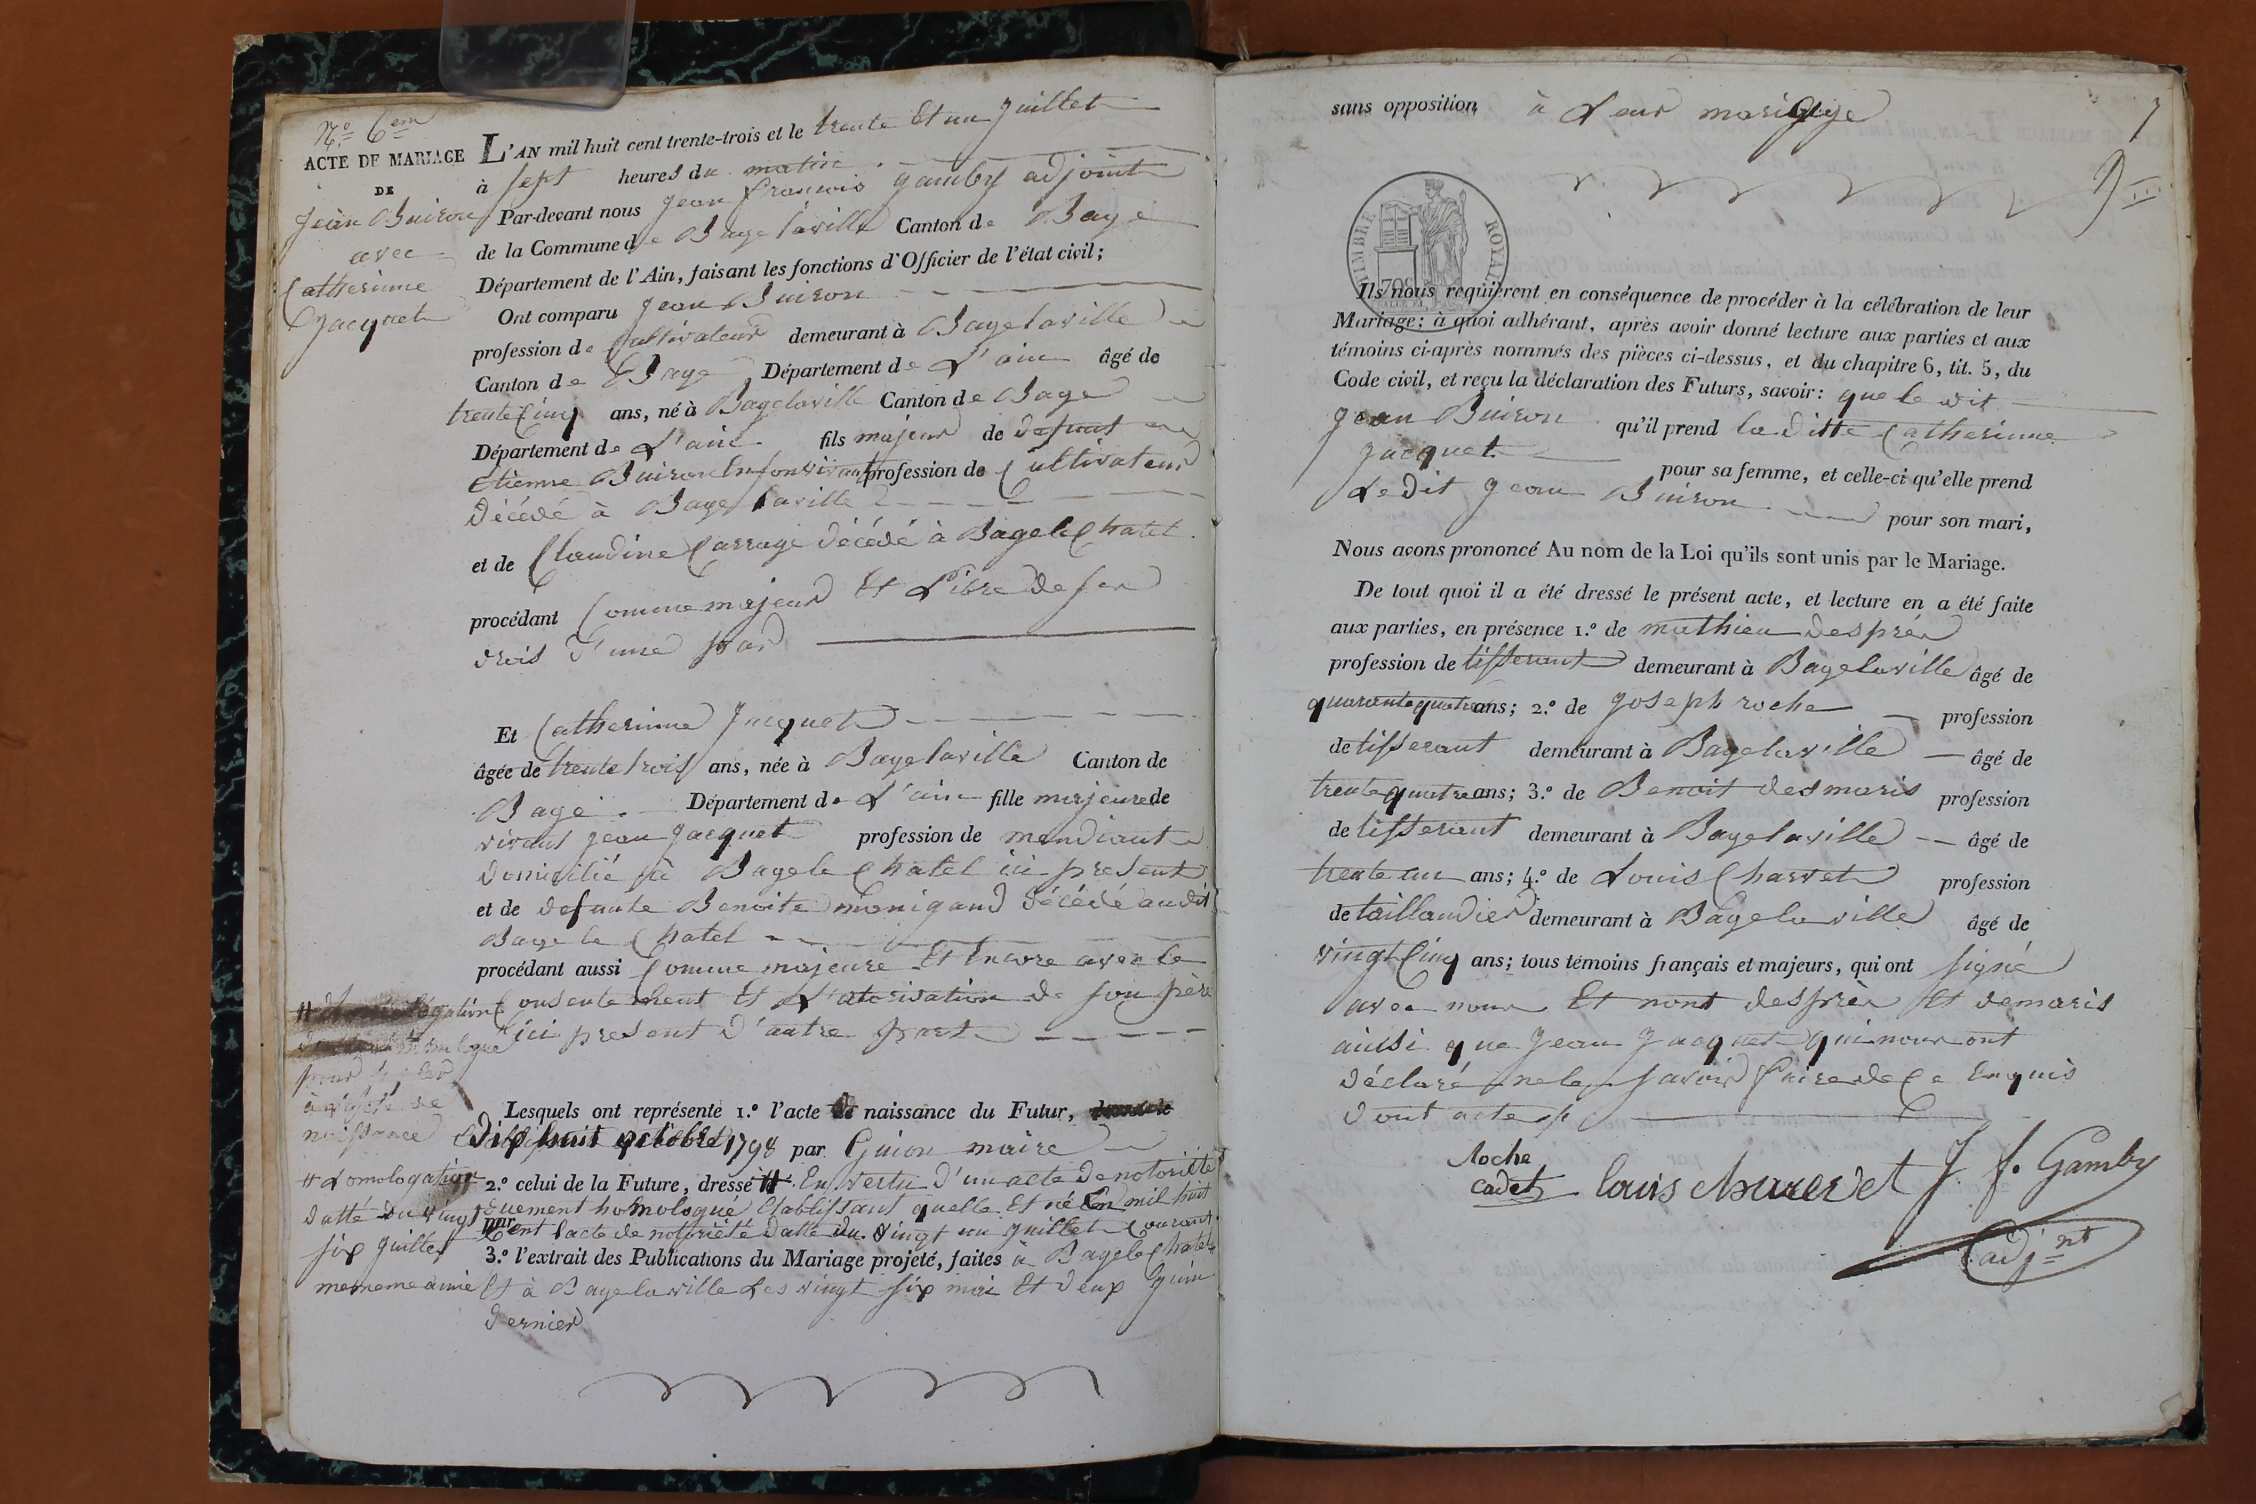 N.º 6em
ACTE DE MARIAGE
DE
Jean Buiron
avec
Catherinne
Jacquet
L'AN mil huit cent trente-trois et le trente Et un Juillet
à sept heures du matin
Par-devant nous Jean francois gamby adjoint
de la Commune de Bage laville Canton de Bage
Département de l'Ain, faisant les fonctions d'Officier de l'état civil;
Ont comparu Jean Buiron
profession de Cultivateur demeurant à Bagelaville
Canton de Bage Département de L'ain âgé de
trente Cinq ans, né à Bagelaville Canton de Bage
Département de L'ain fils majeur de defunt
Etienne Buiron En son vivant profession de Cultivateur
Décédé à Bage laville
et de Claudine Carrage décédé à Bage le Chatel
procédant Comme majeur Et Libre de ser
drois d'une part
Et Catherinne Jacquet
âgée de trente trois ans, née à Bagelaville Canton de
Bage Département de L'ain fille majeure de
vivant jean Jacquet profession de mendiant
domicilié à Bage le Chatel ici present
et de defunte Benoite monigand décédé audit
Bage le Chatel
procédant aussi Comme majeure Et Encore avec le
Consentement Et L'atorisation de son père
ici present d'autre part
Lesquels ont représenté 1.º l'acte de naissance du Futur,
Dix huit octobre 1798 par Guion maire
2.º celui de la Future, dressé # En vertu d'un acte de notoriété
duement homologué Etablissant quelle Et né En mil huit
Cent l'acte de notoriété datté du vingt un juillet Courant
3.º l'extrait des Publications du Mariage projeté, faites à Bage le Chatel
Et à Bagelaville Les vingt six mai Et deux Juin
dernier
# Lomologation
datté du vingt
six juillet
memème année
sans opposition à Leur mariage
7
TIMBRE ROYAL
Ils nous requièrent en conséquence de procéder à la célébration de leur
Mariage: à quoi adhérant, après avoir donné lecture aux parties et aux
témoins ci-après nommés des pièces ci-dessus, et du chapitre 6, tit. 5, du
Code civil, et reçu la déclaration des Futurs, savoir: que le dit
Jean Buiron qu'il prend la ditte Catherinne
Jacquet pour sa femme, et celle-ci qu'elle prend
Le dit Jean Buiron pour son mari,
Nous avons prononcé Au nom de la Loi qu'ils sont unis par le Mariage.
De tout quoi il a été dressé le présent acte, et lecture en a été faite
aux parties, en présence 1.º de mathieu desprér
profession de tisserant demeurant à Bagelaville âgé de
quarante quatre ans; 2.º de joseph roche profession
de tisserant demeurant à Bagelaville âgé de
trente quatre ans; 3.º de Benoit desmaris profession
de tisserant demeurant à Bagelaville âgé de
trente un ans; 4.º de Louis Charvet profession
de taillandier demeurant à Bagelaville âgé de
vingt Cinq ans; tous témoins français et majeurs, qui ont signé
avec nour Et nont desprèr Et demaris
ainsi que Jean Jacquet qui nour ont
déclaré ne le savoir faire de Ce Enquis
dont acte
Roche
cadet
louis charvet
J. f. Gamby
adjnt